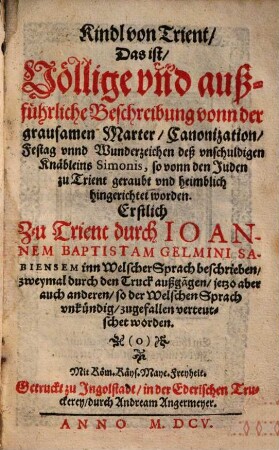 Kindl von Trient/
Das ist/
Völlige vnd auß-
führliche Beschreibung vonn der
grausamen Marter/ Canonization/
Festag vnnd Wunderzeichen deß vnschuldigen
Knäbleins Simonis, so vonn den Juden
zu Trient geraubt vnd heimblich
hingerichtet worden.
Erstlich
Zu Trient durch IOAN-
NEM BAPTISTAM GELMINI SA-
BIENSEM inn Welscher Sprach beschrieben/
zweymal durch den Truck außgägen/ jetzo aber
auch anderen/ so der Welschen Sprach
vnkündig/ zugefallen verteut-
schet worden.
(o)
Mit Röm. Käys. Maye. Freyheit.
Getruckt zu Ingolstadt/ in der Ederischen Tru-
ckerey/ durch Andream Angermeyer.
ANNO M. DCV.